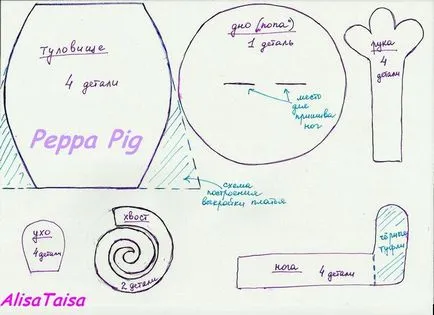 туловище
4 детали
Peppa Pig
дно (попа)
1 деталь
место
для
пришива
ног
рука
4
детали
схема
построения
выкройки платья
ухо
4 детали
хвост
2 детали
нога 4 детали
чёрные
туфли
AlisaTaisa